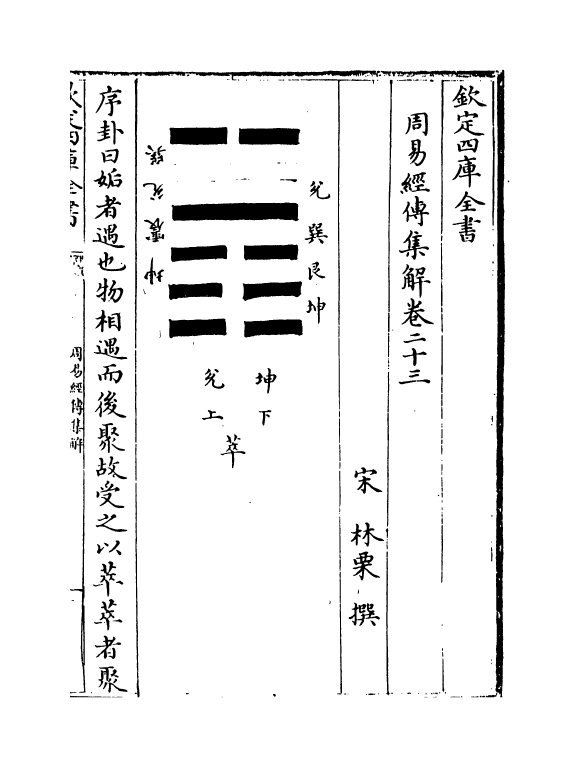 欽定四庫全書
周易經傳集解卷二十三
宋 林栗 撰
兌巽艮坤
坤震兌巽
坤下
兌上
萃
序卦曰姤者遇也物相遇而後聚故受之以萃萃者聚
周易經傳集解